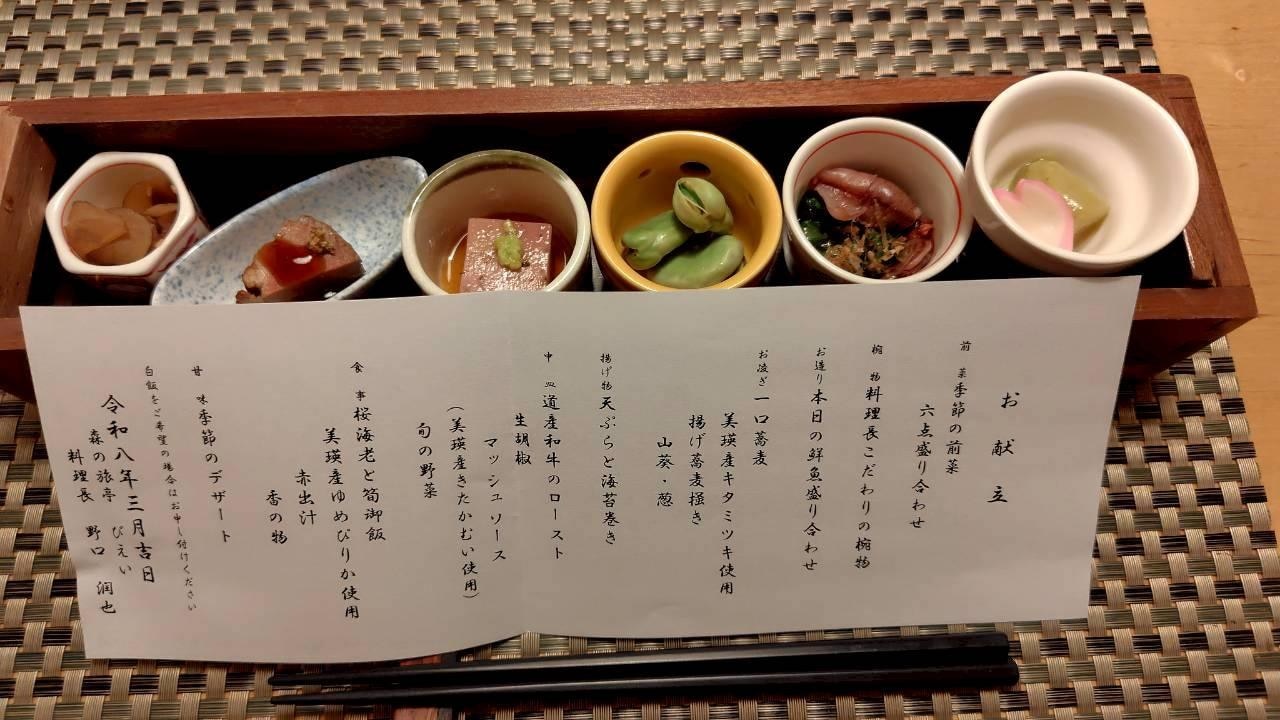 お献立
前菜 季節の前菜
六点盛り合わせ
椀物 料理長こだわりの椀物
お造り 本日の鮮魚盛り合わせ
お凌ぎ 一口蕎麦
美瑛産キタミツキ使用
揚げ蕎麦掻き
山葵・葱
揚げ物 天ぷらと海苔巻き
中皿 道産和牛のロースト
生胡椒
マッシュソース
(美瑛産きたかむい使用)
旬の野菜
食事 桜海老と筍御飯
美瑛産ゆめぴりか使用
赤出汁
香の物
甘味 季節のデザート
白飯をご希望の場合はお申し付けください
令和八年三月吉日
森の旅亭 びえい
料理長 野口 潤也